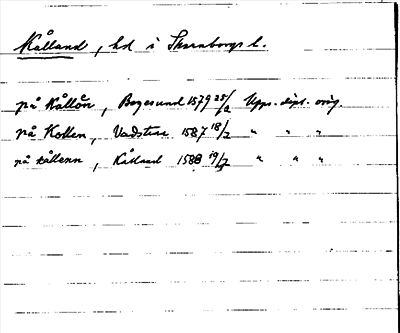 Kålland, hd i Skaraborgs l.
på Kållôn, Bogesund 1579 25/2 Upps. dipl. orig.
på Kollen, Vadstena 1587 18/2 " " "
på kållenn, Kålland 1588 19/7 " " "